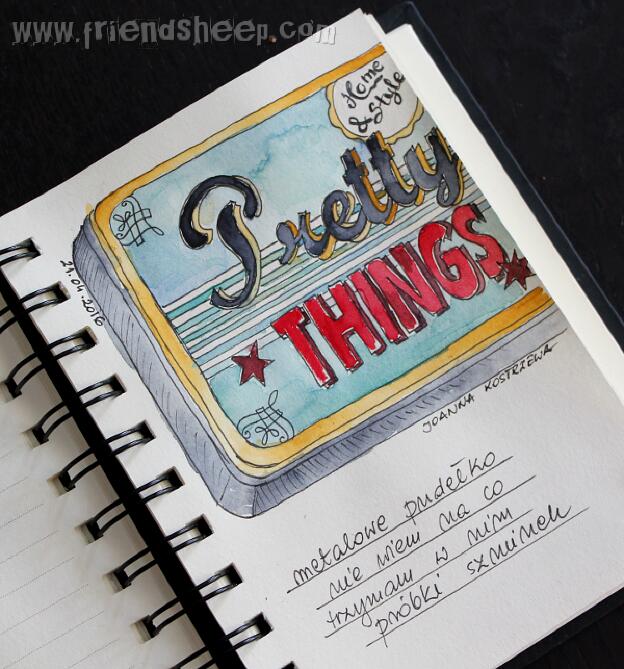 www.friendsheep.com
Home
& Style
Pretty
THINGS
29.04.2016
JOANNA KOSTRZEWA
metalowe pudełko
nie wiem na co
trzymam w nim
próbki szminek